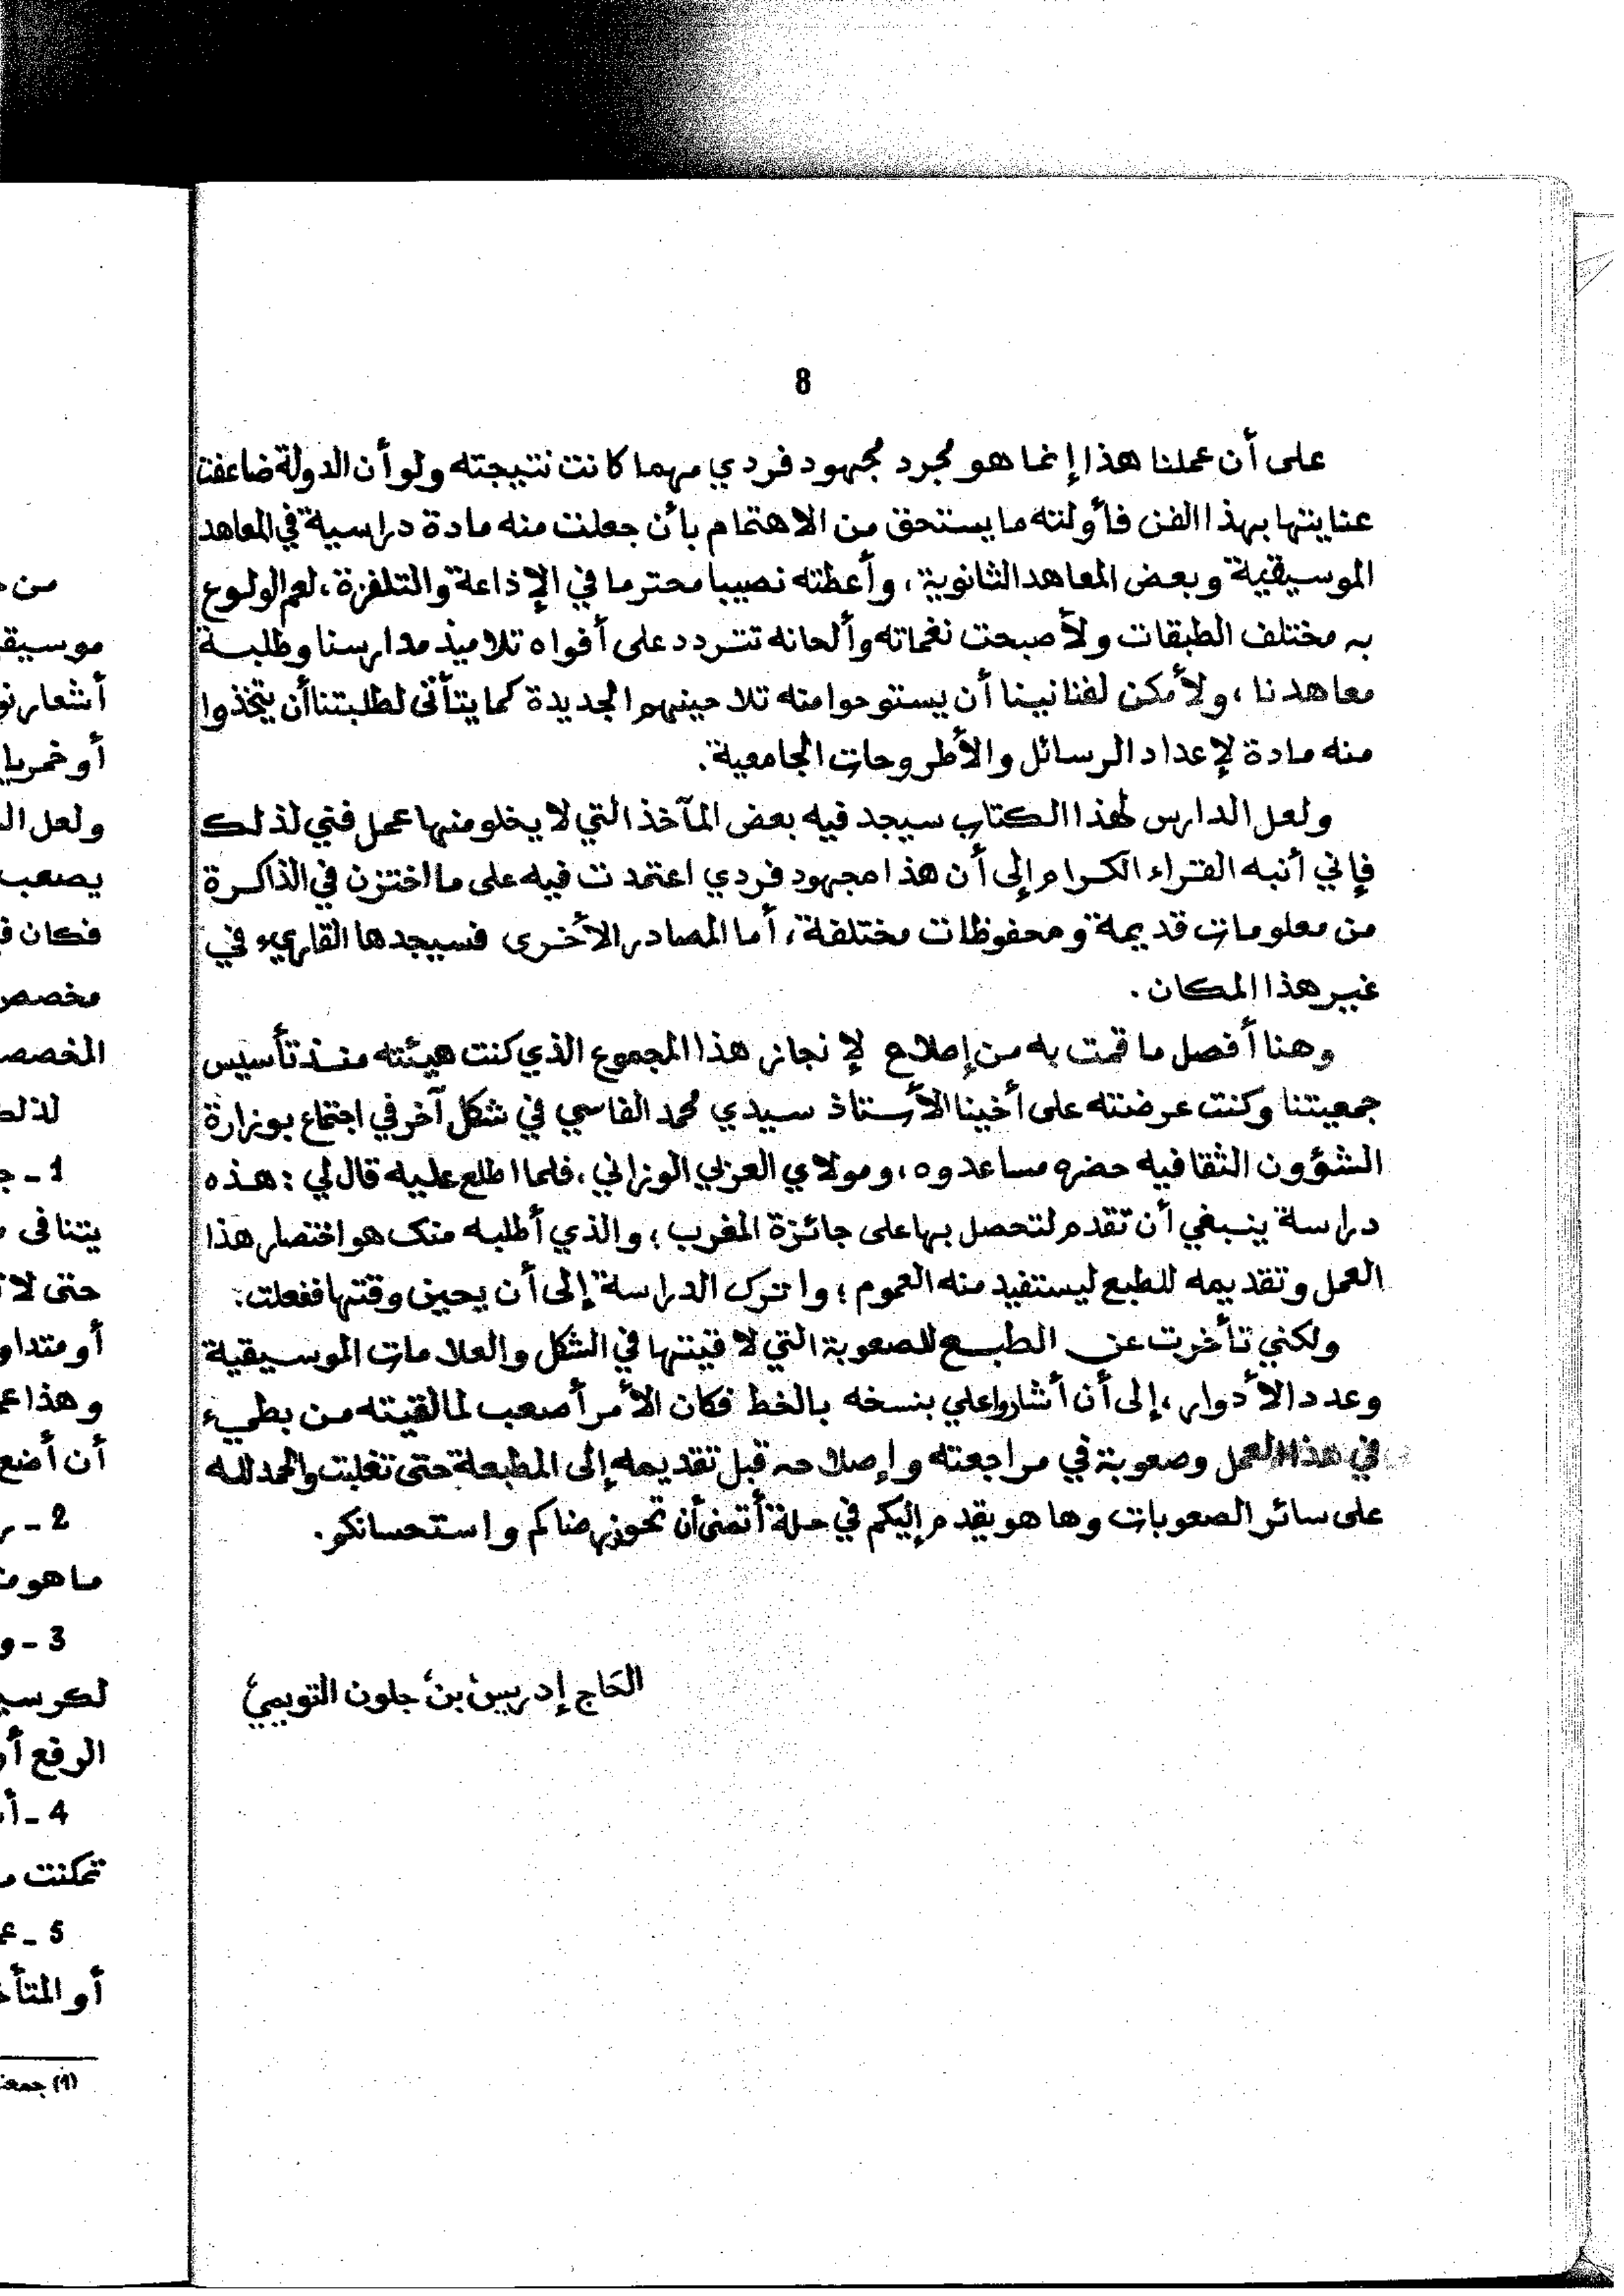 8
على أن عملنا هذا إنما هو مجرد مجهود فردي مهما كانت نتيجته ولو أن الدولة ضاعفت
عنايتها بهذا الفن فأولته ما يستحق من الاهتمام بأن جعلت منه مادة دراسية في المعاهد
الموسيقية وبعض المعاهد الثانوية، وأعطته نصيبا محترما في الإذاعة والتلفزة، لعم الولوع
به مختلف الطبقات ولأصبحت نغماته وألحانه تتردد على أفواه تلاميذ مدارسنا وطلبة
معاهدنا، ولأمكن لفنانينا أن يستوحوا منه تلاحينهم الجديدة كما يتأتى لطلبتنا أن يتخذوا
منه مادة لإعداد الرسائل والأطروحات الجامعية.
ولعل الدارس لهذا الكتاب سيجد فيه بعض المآخذ التي لا يخلو منها عمل فني لذلك
فإني أنبه القراء الكرام إلى أن هذا مجهود فردي اعتمدت فيه على ما اختزن في الذاكرة
من معلومات قديمة ومحفوظات مختلفة، أما المصادر الأخرى فسيجدها القاريء في
غير هذا المكان.
وهنا أفصل ما قمت به من إصلاح لإنجاز هذا المجموع الذي كنت هيئته منذ تأسيس
جمعيتنا وكنت عرضته على أخينا الأستاذ سيدي محمد الفاسي في شكل آخر في اجتماع بوزارة
الشؤون الثقافيه حضره مساعدوه، ومولاي العربي الوزاني، فلما اطلع عليه قال لي: هذه
دراسة ينبغي أن تقدم لتحصل بها على جائزة المغرب؛ والذي أطلبه منك هو اختصار هذا
العمل وتقديمه للطبع ليستفيد منه العموم؛ واترك الدراسة إلى أن يحين وقتها ففعلت.
ولكني تأخرت عن الطبع للصعوبة التي لاقيتها في الشكل والعلامات الموسيقية
وعدد الأدوار، إلى أن أشاروا علي بنسخه بالخط فكان الأمر أصعب لما لقيته من بطيء
في هذا العمل وصعوبة في مراجعته وإصلاحه قبل تقديمه إلى المطبعة حتى تغلبت والحمد لله
على سائر الصعوبات وها هو يقدم إليكم في حلة أتمنى أن تحوز رضاكم واستحسانكم.
الحاج إدريس بن جلون التويمي
من
أشعار
ولعل
يصعب
فكان
لذلك
1 -
يتنافى
حتى لا
وهذا
أن أضع
2 -
ما هو
3 - و
الرفع
4 -
تمكنت
5 -
(1)